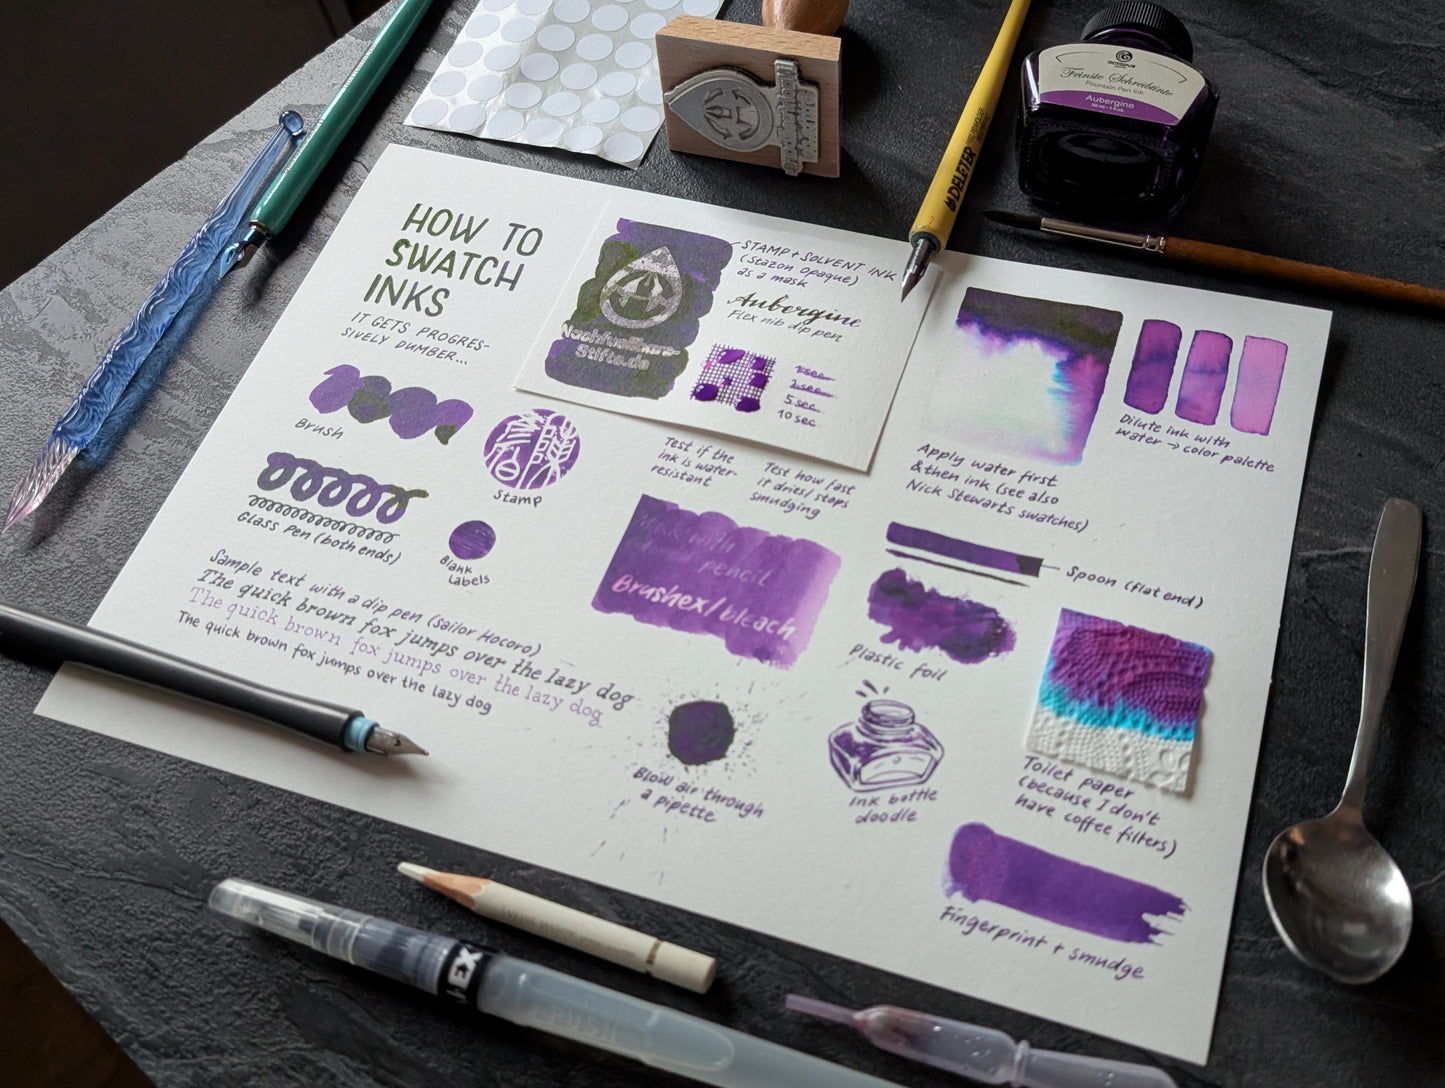 HOW TO
SWATCH
INKS
IT GETS PROGRES-
SIVELY DUMBER...
Brush
Stamp
Glass Pen (both ends)
Blank
Labels
Sample text with a dip pen (Sailor Hocoro)
The quick brown fox jumps over the lazy dog
The quick brown fox jumps over the lazy dog
The quick brown fox jumps over the lazy dog
Nachfuellbare-
Stifte.de
STAMP + SOLVENT INK
(Stazon Opaque)
as a mask
Aubergine
Flex nib dip pen
1 sec
2 sec
5 sec
10 sec
Test if the
ink is water-
resistant
Test how fast
it dries/stops
smudging
Mask with
pencil
Brushex/bleach
Blow air through
a pipette
Apply water first
& then ink (see also
Nick Stewarts swatches)
Dilute ink with
water → color palette
Spoon (flat end)
Plastic foil
Ink bottle
doodle
Toilet paper
(because I don't
have coffee filters)
Fingerprint + smudge
OCTOPUS
Feinste Schreibtinte
Fountain Pen Ink
Aubergine
DELETER
EX